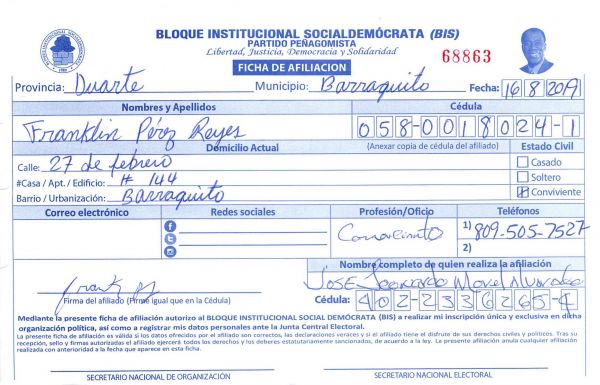 BLOQUE INSTITUCIONAL SOCIALDEMÓCRATA (BIS)
PARTIDO PEÑAGOMISTA
Libertad, Justicia, Democracia y Solidaridad
68863
FICHA DE AFILIACION
Provincia: Duarte Municipio: Barraquito Fecha: 16 8 2019
Nombres y Apellidos Cédula
Franklin Pérez Reyes 058-0018024-1
Domicilio Actual (Anexar copia de cédula del afiliado) Estado Civil
Calle: 27 de febrero Casado
#Casa / Apt. / Edificio: # 144 Soltero
Barrio / Urbanización: Barraquito Conviviente
Correo electrónico Redes sociales Profesión/Oficio Teléfonos
1) 809-505-7527
2)
Nombre completo de quien realiza la afiliación
Jose Leonardo
Firma del afiliado (Firme igual que en la Cédula) Cédula: 402-2336265-4
Mediante la presente ficha de afiliación autorizo al BLOQUE INSTITUCIONAL SOCIAL DEMÓCRATA (BIS) a realizar mi inscripción única y exclusiva en dicha
organización política, así como a registrar mis datos personales ante la Junta Central Electoral.
La presente ficha de afiliación es válida si los datos ofrecidos por el afiliado son correctos, las declaraciones veraces y si el afiliado tiene el disfrute de sus derechos civiles y políticos. Tras su
recepción, sello y firmas autorizadas el afiliado ejercerá todos los derechos y los deberes estatutariamente sancionados, de acuerdo a la ley. La presente afiliación anula cualquier afiliación
realizada con anterioridad a la fecha que aparece en esta ficha.
SECRETARIO NACIONAL DE ORGANIZACIÓN SECRETARIO NACIONAL ELECTORAL